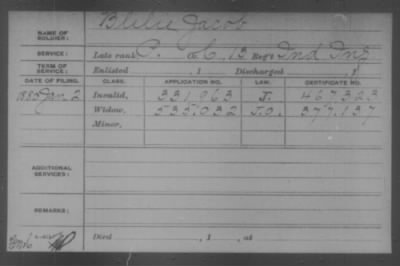 NAME OF SOLDIER: Jacob
SERVICE: Late rank P. Co. C, 13 Reg't Ind Inf
TERM OF SERVICE: Enlisted , 1 Discharged , 1
DATE OF FILING. CLASS. APPLICATION NO. LAW. CERTIFICATE NO.
1885 Jan 2 Invalid, 331,963 J. 467,323
Widow, 535,032 577,137
Minor,
ADDITIONAL SERVICES:
REMARKS:
Died , 1 , at